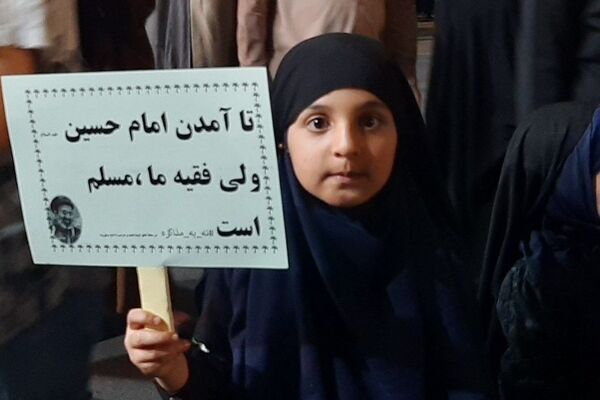 تا آمدن امام حسین
ولی فقیه ما ،مسلم
است
#نه_به_مذاکره